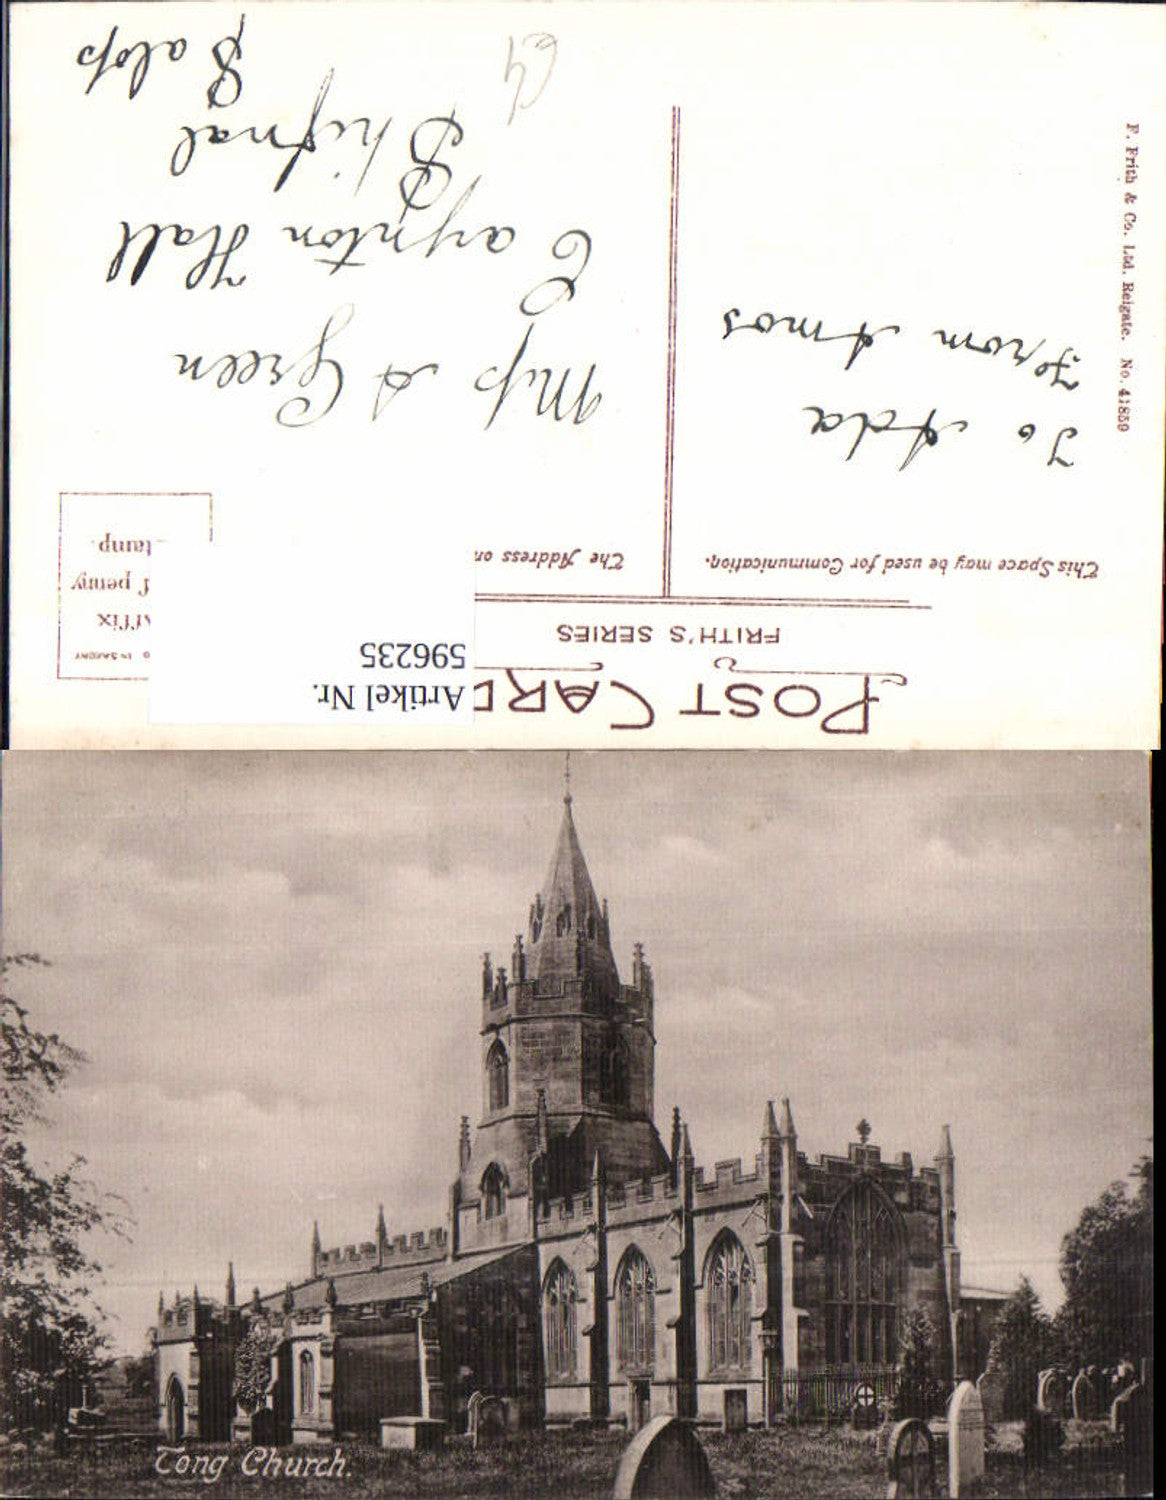 POST CARD
FRITH'S SERIES
This Space may be used for Communication.
The Address on
Affix
penny
tamp.
IN SAXONY
Artikel Nr.
596235
To Ada
From Amos
Miss A Green
Taynton Hall
Shifnal
Salop
F. Frith & Co. Ltd. Reigate. No. 41859
Tong Church.